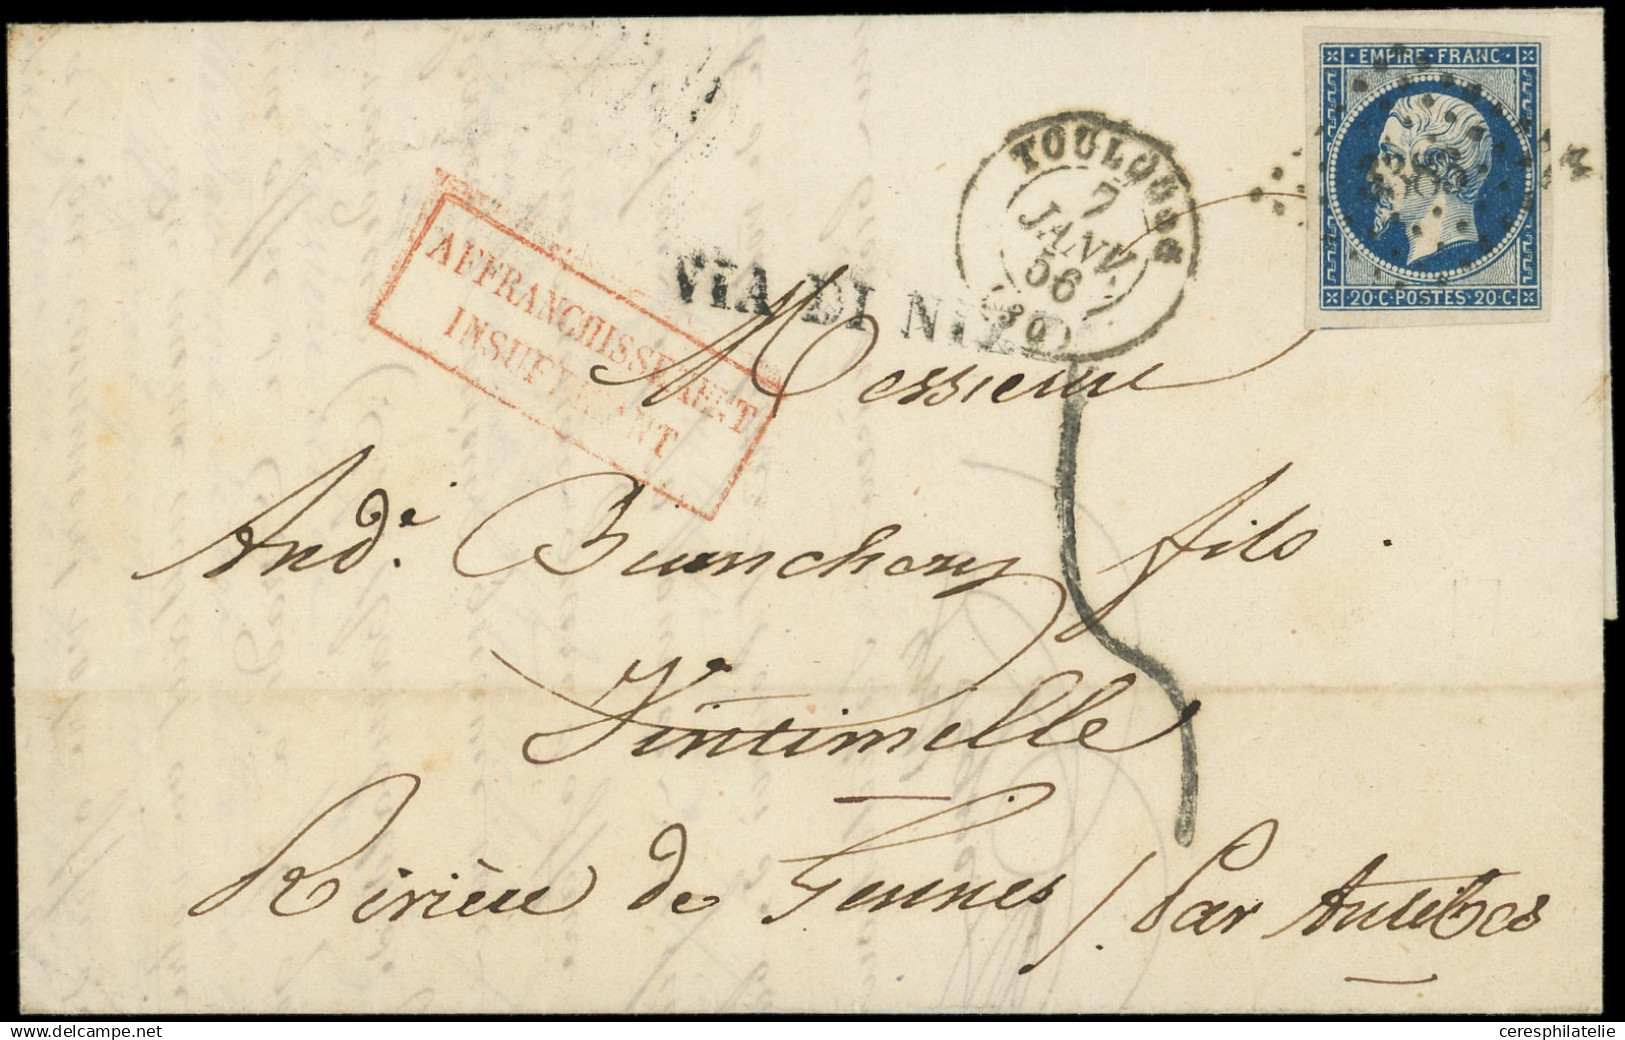 · EMPIRE · FRANC ·
20 · C · POSTES · 20 · C ·
TOULOUSE
7
JANV.
56
(30)
AFFRANCHISSEMENT
INSUFFISANT
VIA DI NIZZA
Messieur
And.i Bianchery fils .
Vintimille
Rivière de Gennes / Par Antibes
ceresphilatelie